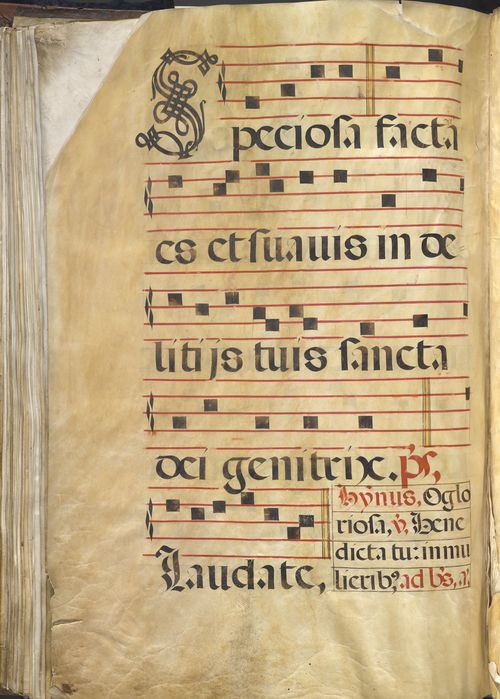 Speciosa facta
es et suauis in de
litijs tuis sancta
dei genitrix. ps,
Laudate,
Hỹnus, O glo
riosa, ṽ, Bene
dicta tu: in mu
lierib9, ad bs, a: